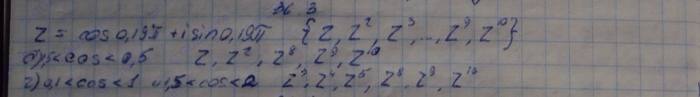 № 3
z = cos 0,19π + i sin 0,19π {z, z², z³, ..., z⁹, z¹⁰}
<cos<0,5 z, z², z⁸, z⁹, z¹⁰
2) 0,1<cos<1 1,5<cos<2 z³, z⁴, z⁵, z⁸, z⁹, z¹⁰